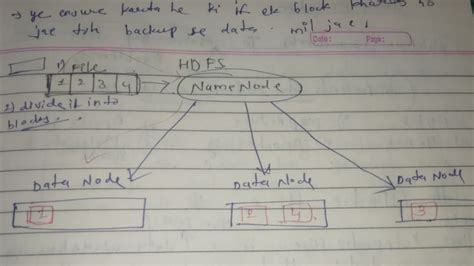 → ye ensure karta he ki if ek block
jae toh backup se data mil jae.
Date: Page:
1) File
HDFS
1 2 3 4
NameNode
2) divide it into
blocks.
Data Node
Data Node
Data Node
1
2 4
3